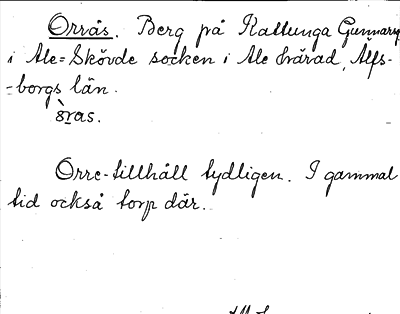 Orrås. Berg på Kattunga Gunnarsg
i Ale-Skövde socken i Ale härad, Älfs-
-borgs län.
òras.
Orre-tillhåll tydligen. I gammal
tid också torp där.